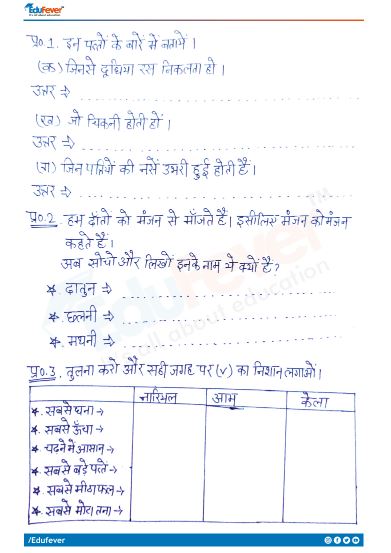 EduFever
It's all about education
प्र०1. इन पत्तों के बारे में बताये।
(क) जिनसे दूधिया रस निकलता हो।
उत्तर ⇒
(ख) जो चिकनी होती हों।
उत्तर ⇒
(ग) जिन पत्तियों की नसें उभरी हुई होती हैं।
उत्तर ⇒
प्र०2. हम दाँतो को मंजन से माँजते हैं। इसीलिए मंजन को मंजन
कहते हैं।
अब सोचो और लिखों इनके नाम ये क्यों हैं?
* दातुन ⇒
* छलनी ⇒
* मथनी ⇒
प्र०3. तुलना करो और सही जगह पर (✓) का निशान लगाओं।
नारियल आम केला
* सबसे घना →
* सबसे ऊँचा →
* चढ़ने मे आसान →
* सबसे बड़े पत्ते →
* सबसे मीठा फल →
* सबसे मोटा तना →
EduFever
TM
all about education
/Edufever